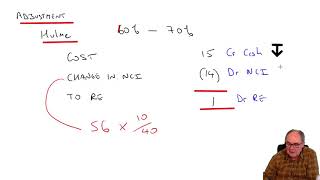 ADJUSTMENT
Hulme 60% - 70%
COST 15 Cr Cash
CHANGE IN NCI (14) Dr NCI
TO RE 1 Dr RE
56 x 10/40